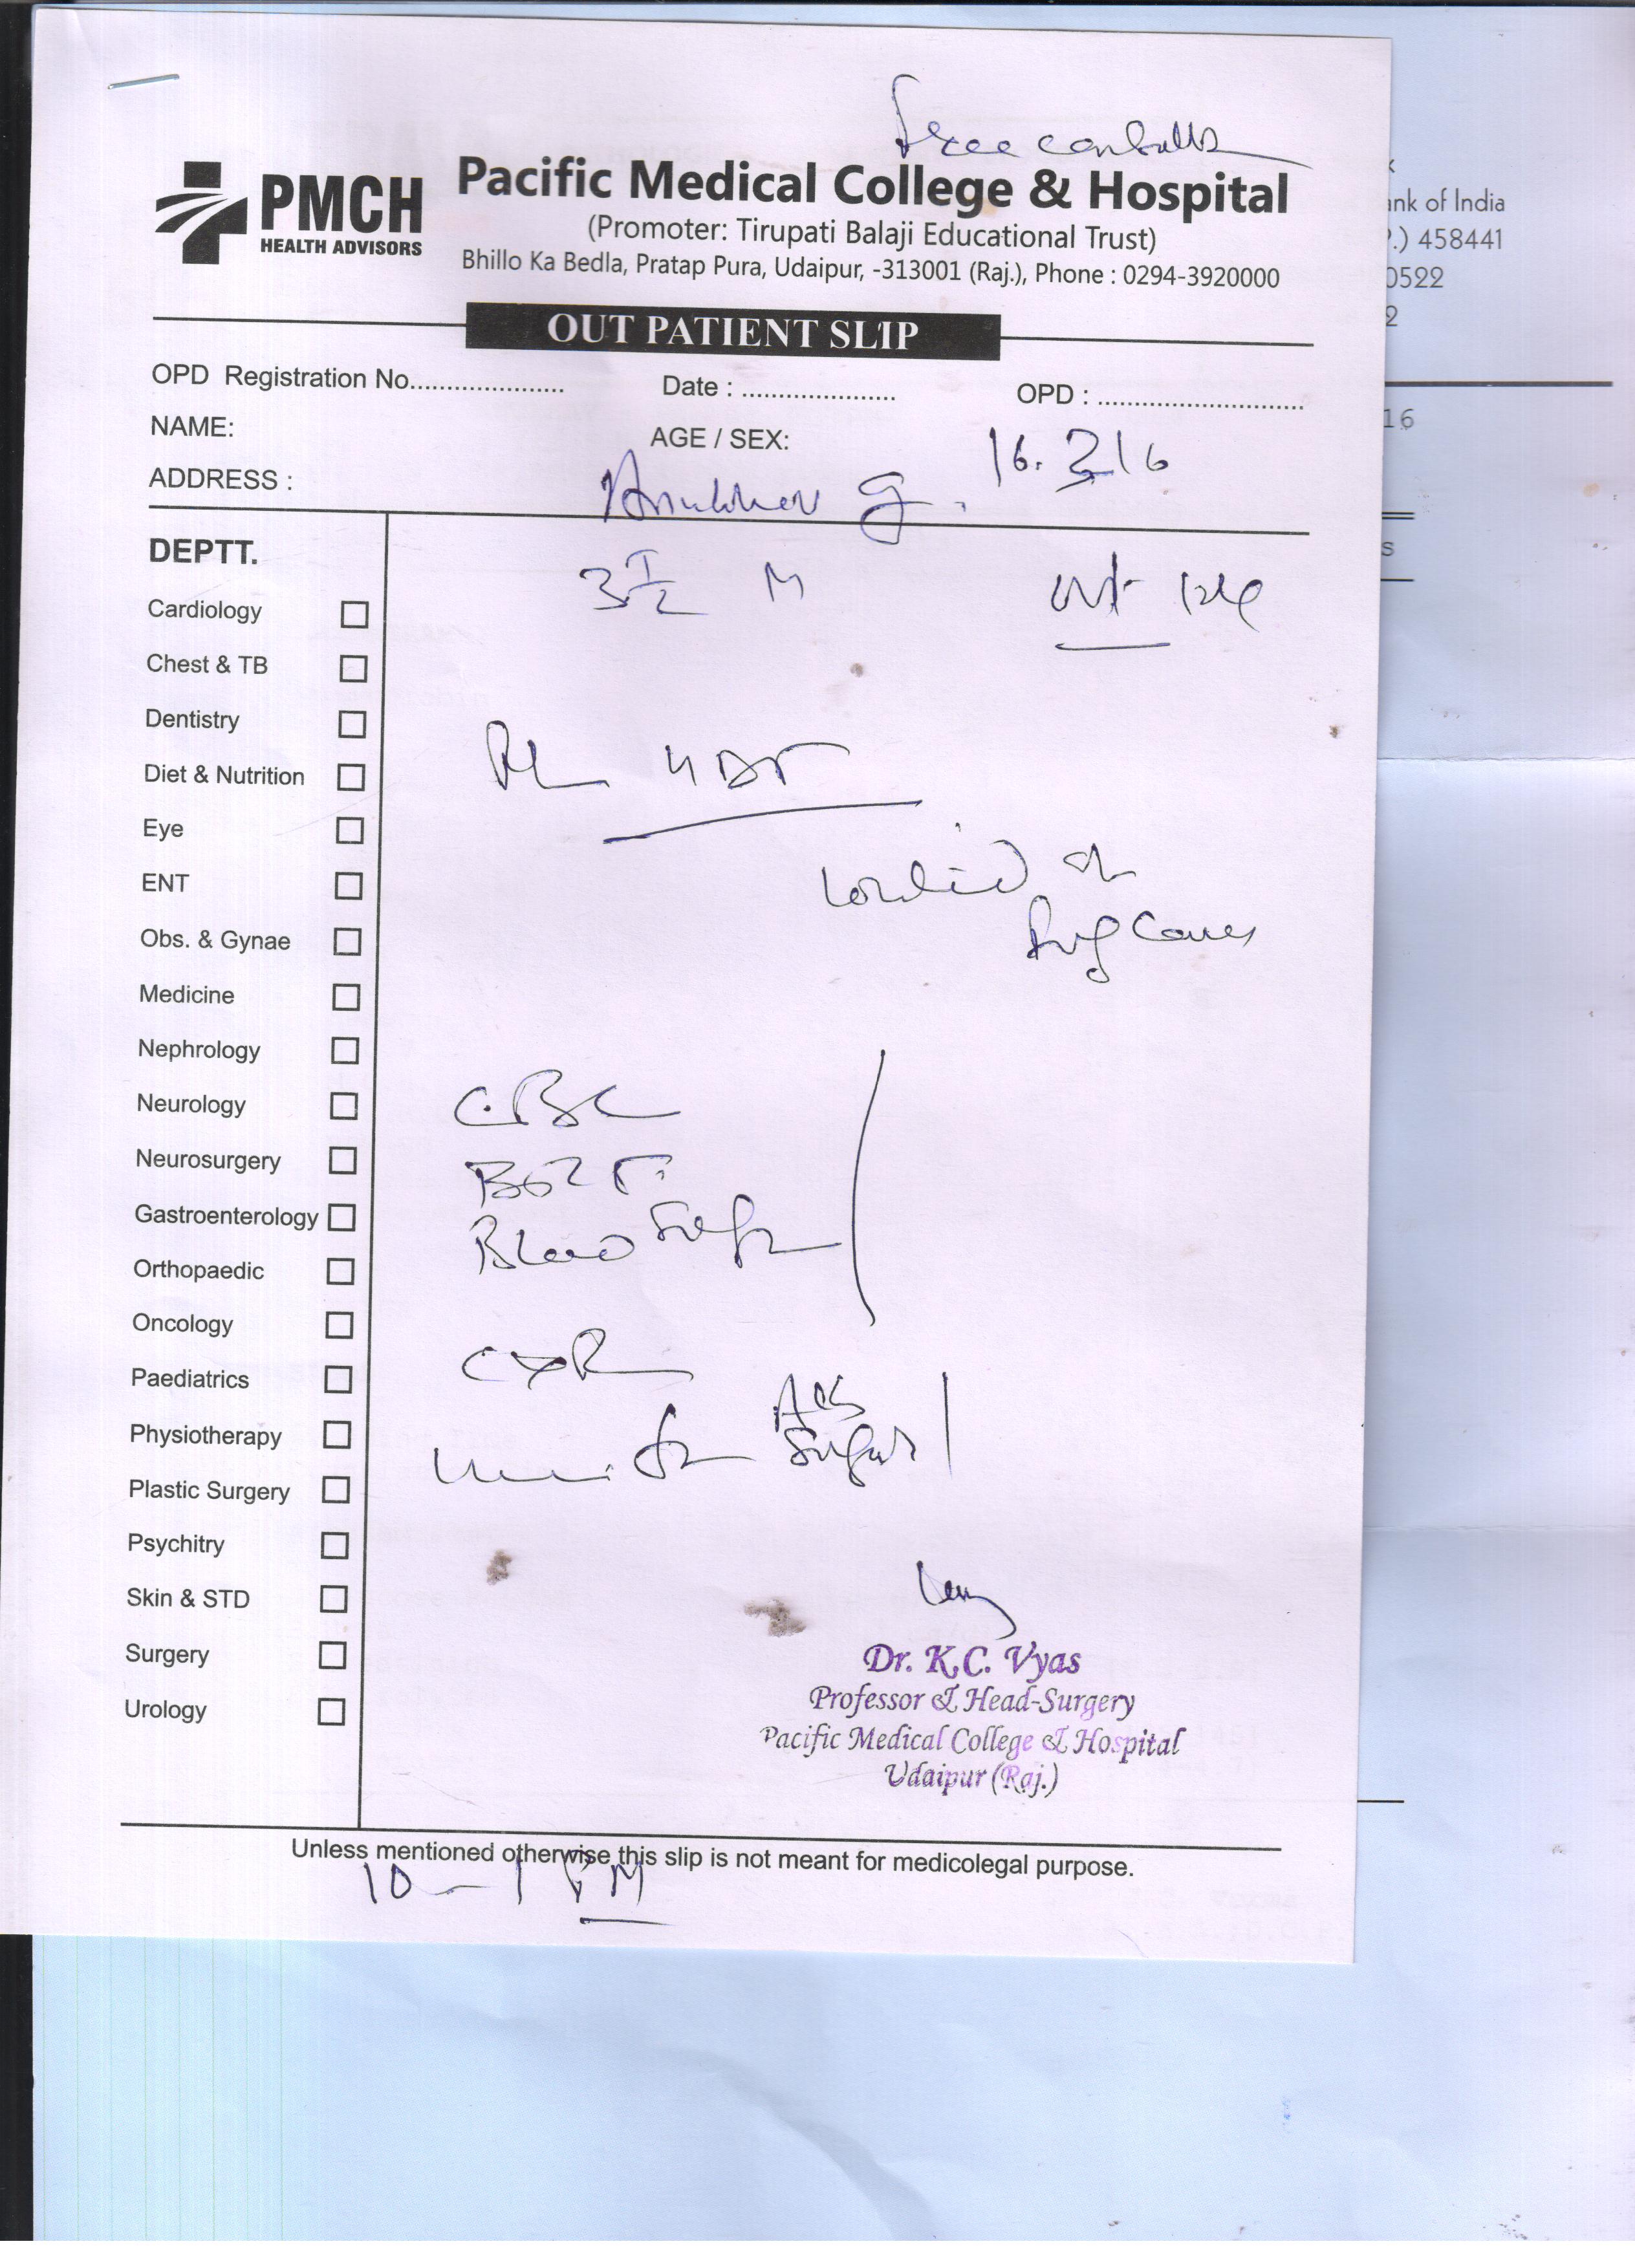 Free
PMCH
HEALTH ADVISORS
Pacific Medical College & Hospital
(Promoter: Tirupati Balaji Educational Trust)
Bhillo Ka Bedla, Pratap Pura, Udaipur, -313001 (Raj.), Phone : 0294-3920000
ank of India
.) 458441
0522
2
OUT PATIENT SLIP
OPD Registration No..................... Date : ..................... OPD : ............................
16
NAME: AGE / SEX:
16.3.16
ADDRESS :
s
DEPTT.
3 1/2 M Wt
Cardiology
Chest & TB
Dentistry
Diet & Nutrition
Eye
ENT
Obs. & Gynae
Medicine
Nephrology
Neurology
Neurosurgery
Gastroenterology
Orthopaedic
Oncology
Paediatrics
Physiotherapy
Plastic Surgery
Psychitry
Skin & STD
Surgery
Urology
CBC
Blood Sugar
CXR
Sugar
Dr. K.C. Vyas
Professor & Head-Surgery
Pacific Medical College & Hospital
Udaipur (Raj.)
Unless mentioned otherwise this slip is not meant for medicolegal purpose.
10 - 1 PM